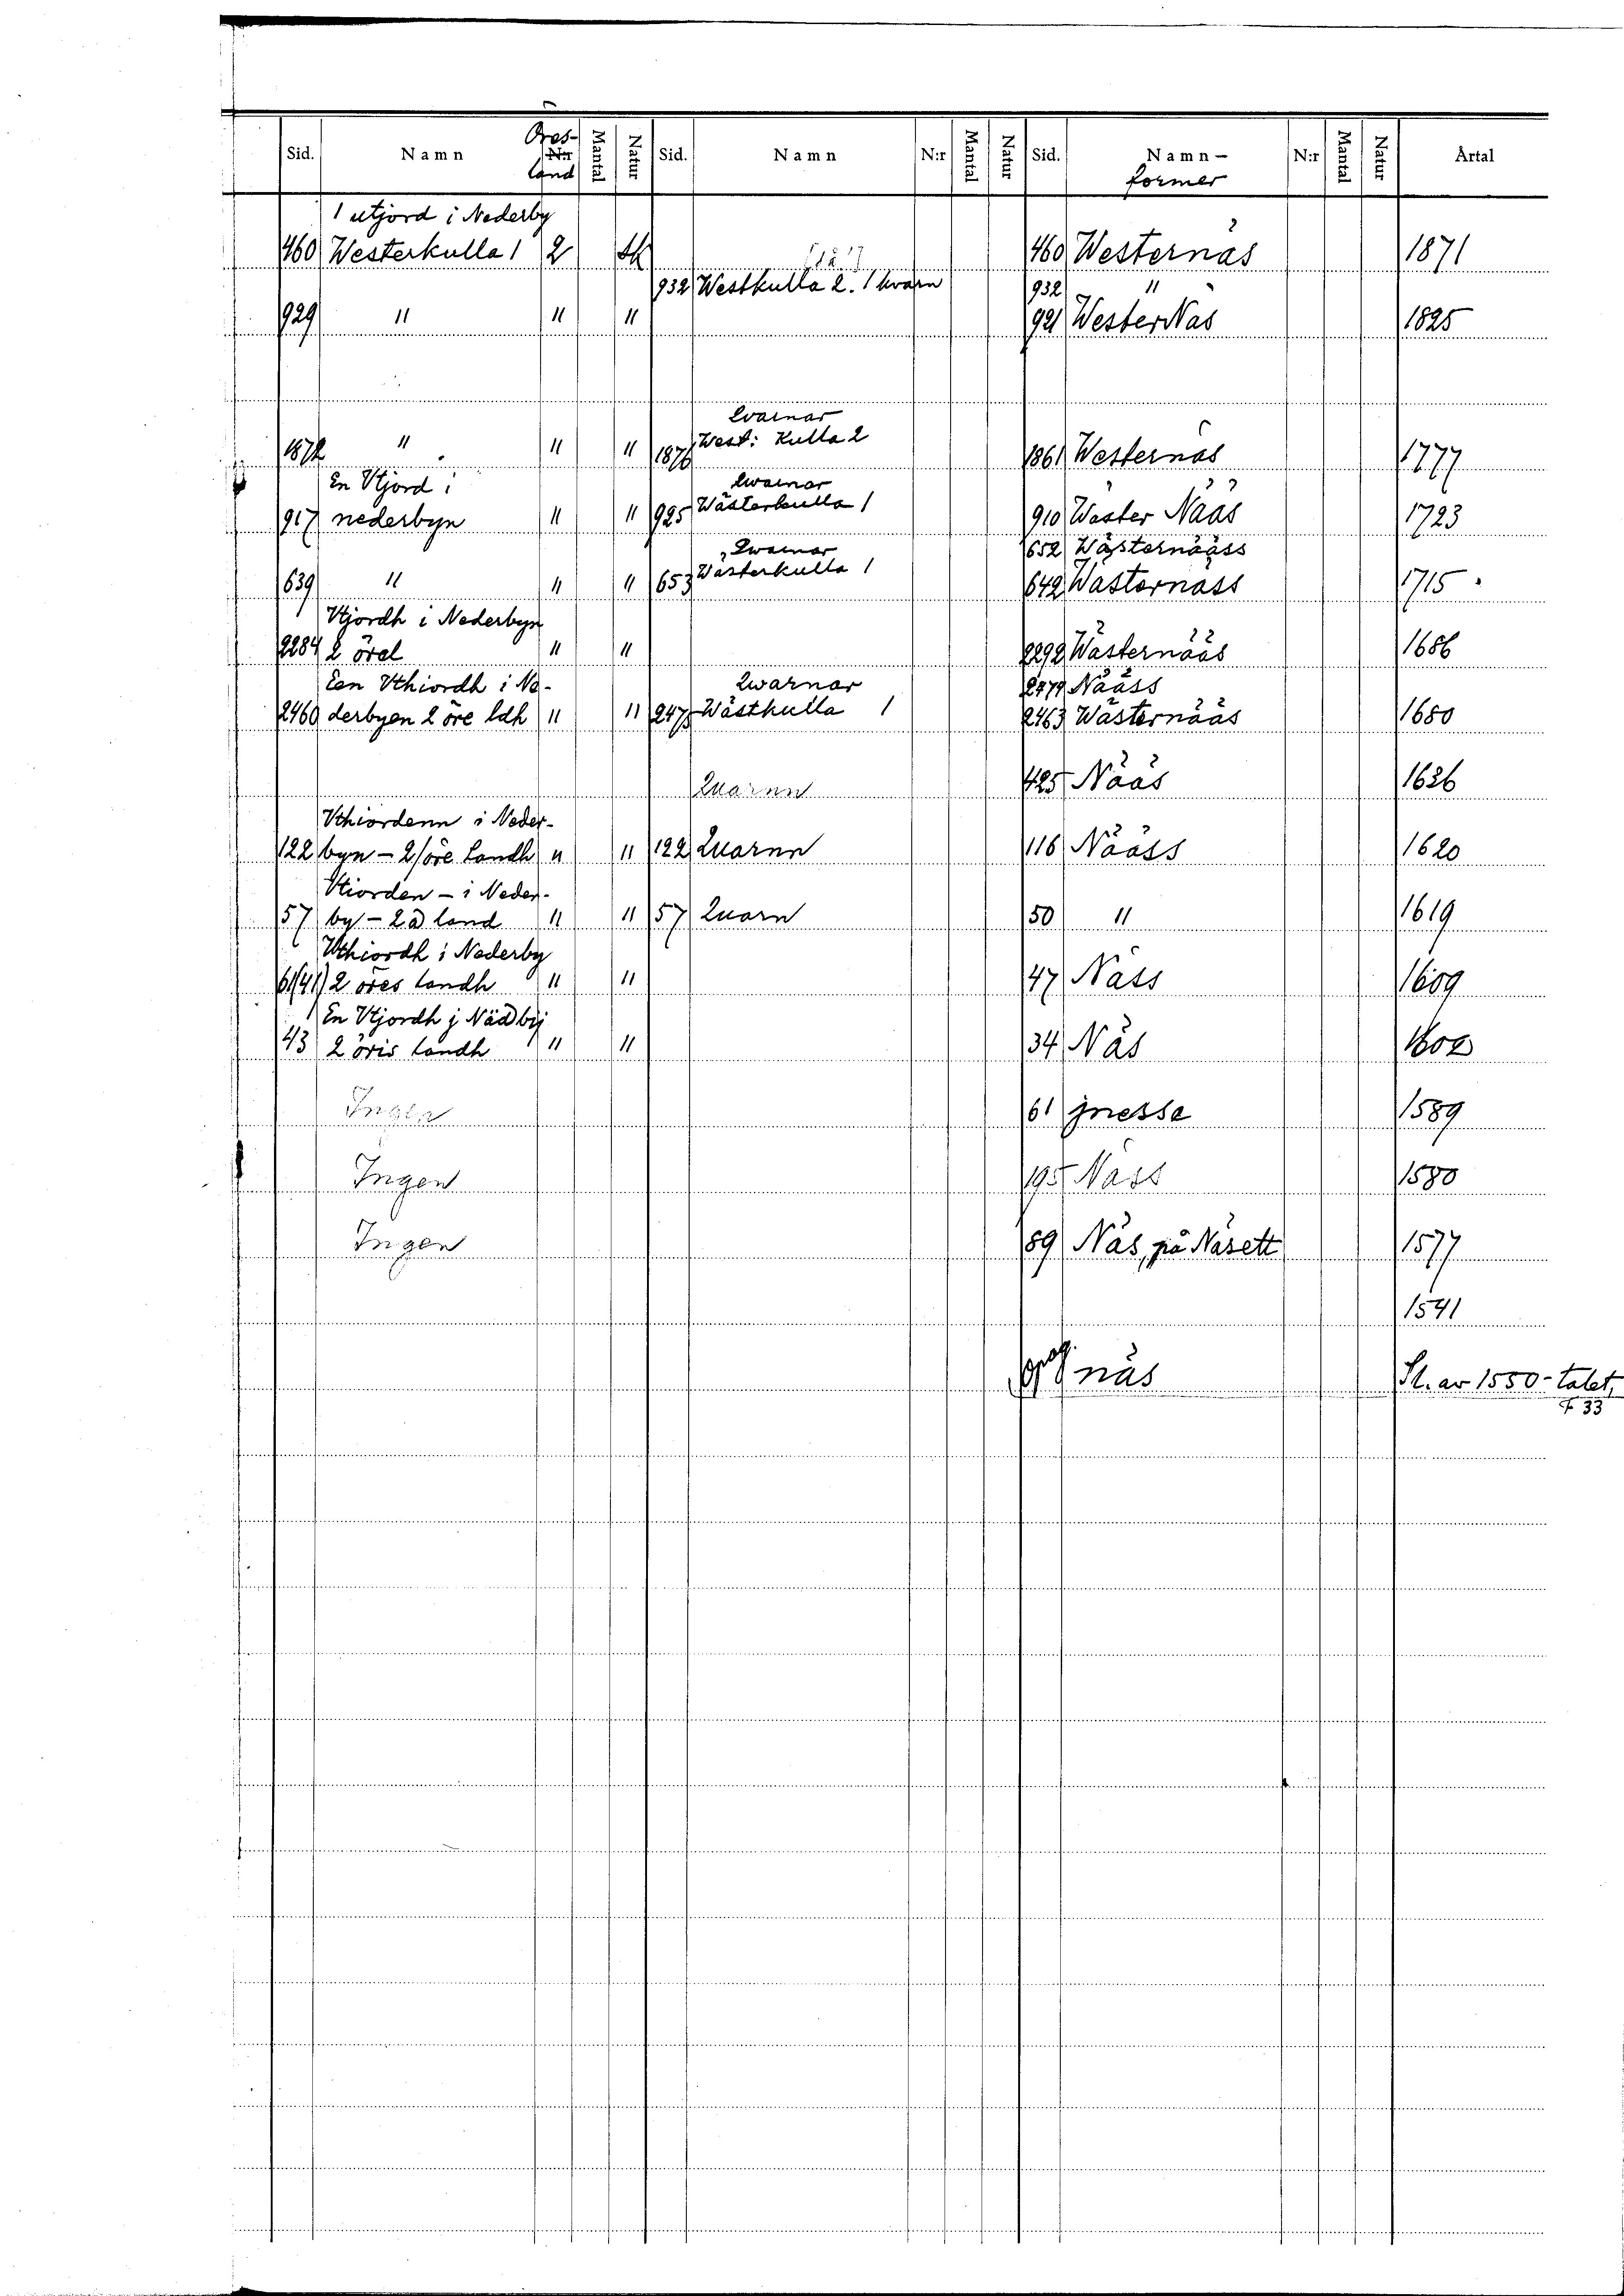 Sid. Namn Öres- N:r land Mantal Natur Sid. Namn N:r Mantal Natur Sid. Namn- former N:r Mantal Natur Årtal
1 utjord i Nederby
460 Westerkulla 1 2 sk 460 Westernäs 1871
932 Westkulla 2. 1 kvarn 932 "
929 " " " 921 WesterNäs 1825
Qvarnar
1872 " " " 1876 West: Kulla 2 1861 Westernäs 1777
En Utjord i Qwarnar
917 nederbyn " " 925 Wästerkulla 1 910 Wäster Nääs 1723
Qwarnar 652 Wästernääss
639 " " " 653 Wästerkulla 1 642 Wästernäss 1715
Utjordh i Nederbyn
2284 2 öral " " 2292 Wästernääs 1686
Een Vthiordh i Ne- Qwarnar 2479 Nääss
2460 derbyen 2 öre ldh " " 2475 Wästkulla 1 2463 Wästernääs 1680
Quarnn 425 Nääs 1626
Vthiordenn i Neder-
122 byn - 2 öre Landh " " 122 Quarnn 116 Nääss 1620
Vtiorden - i Neder-
57 by - 2 ö land " " 57 Quarn 50 " 1619
Vthiordh i Nederby
61(41) 2 öres landh " " 47 Näss 1609
En Vtjordh j Nädbij
43 2 öris landh " " 34 Näs 1602
Ingen 61 jnesse 1589
Ingen 195 Näss 1580
Ingen 89 Näs, på Näsett 1577
1541
näs Sl. av 1550-talet,
F 33